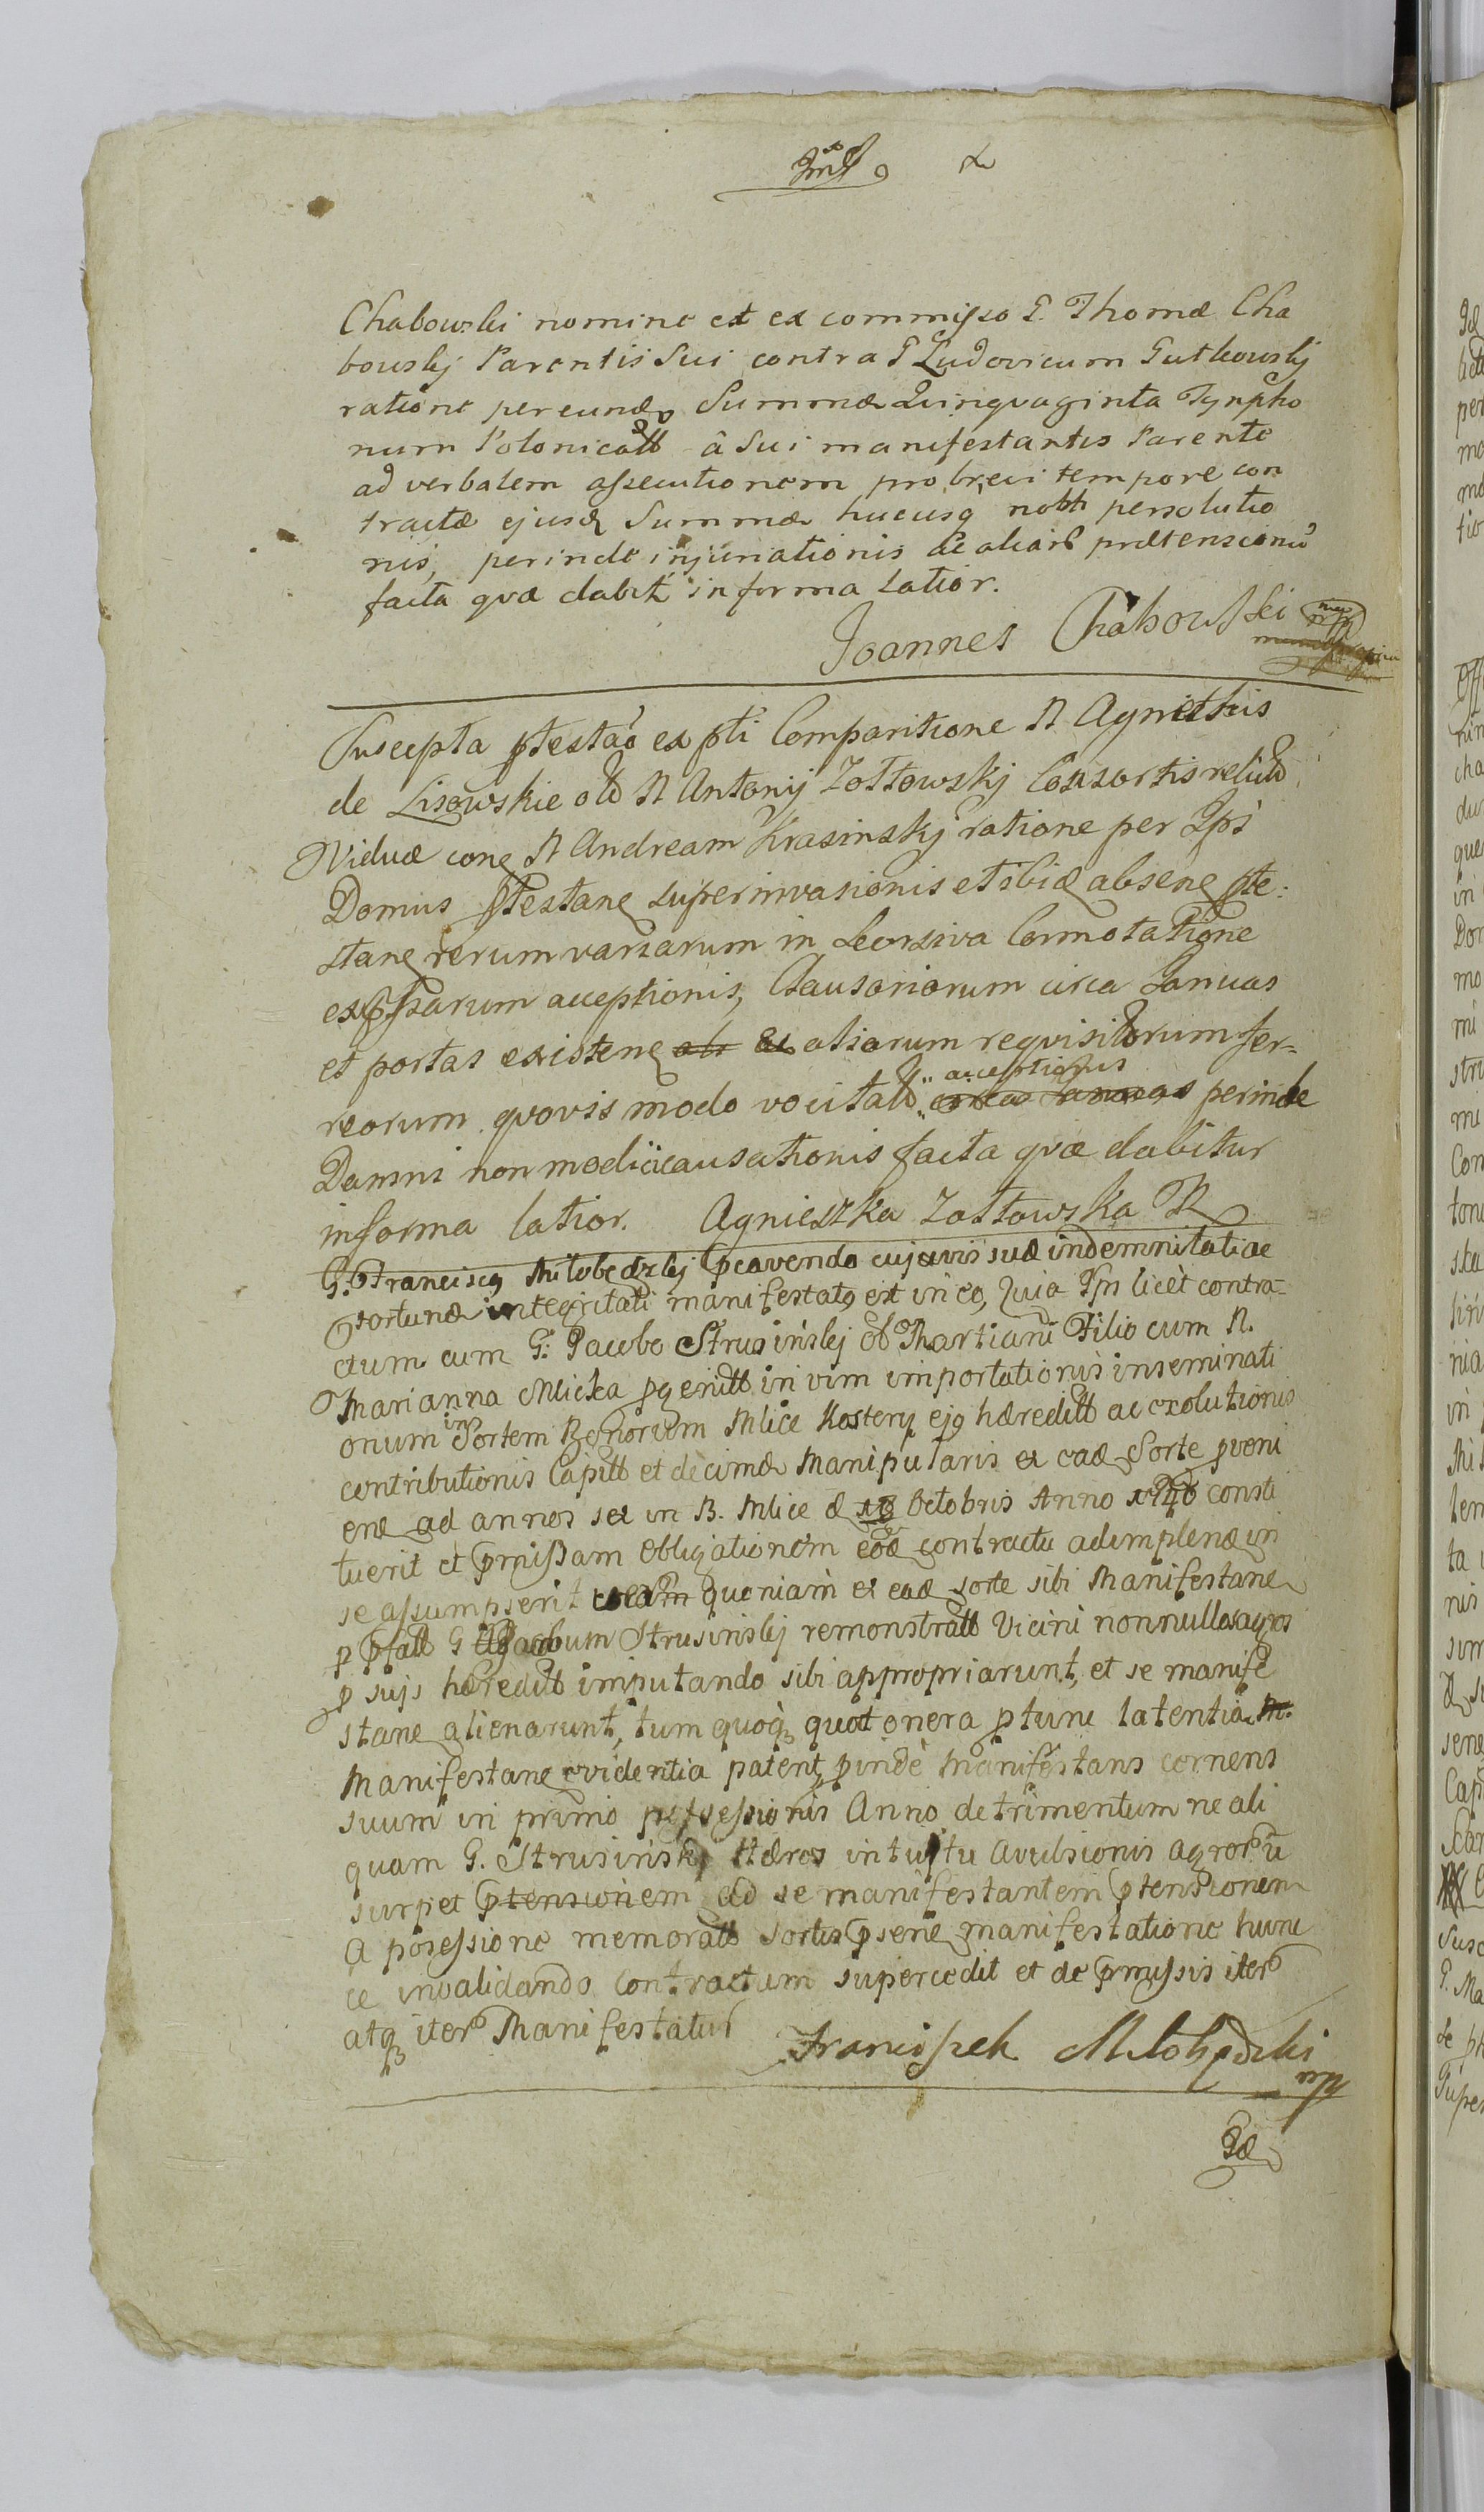 Chabowski nomine et ex commisso G. Thomæ Cha
bowskj Parentis Sui contra G Ludovicum Gutkowskj
ratione per eund Summæ Quinquaginta Tynpho
num Polonicall â Sui manifestantis Parente
ad verbalem assecutionem pro brevi tempore con
tractæ ejusd Summæ hucusq nobh persolutio
nis, perinde injuriationis ac aliar prætensionu
facta quæ dabit in forma latior.
Joannes Chabowski mp
Suscepta ptestao ex pti Comparitione N Agnethis
de Lisowskie olb N Antonij Zołtowskj Consortis relict
Viduæ cone N Andream Krasinskj ratione per Ips
Domus ptestane superinvasionis et ibid absene pte:
stane rerum variarum in Seorsiva Connotatione
exprssarum acceptionis, Clausoriorum circa Januas
et portas existene ac aliarum requisitorum fer-
reorum quovis modo vocitall acceptionis perinde
Damni non modici causationis facta quæ dabitur
in forma latior. Agnieszka Zołtowska
G. Franciscq Miłobędzkj pcavendo cujusvis suæ indemnitati ac
Fortunæ integritati manifestatq est in eo, Quia Ips licèt contra-
ctum cum G: Jacobo Strusińskj olb Martiani Filio cum N.
Marianna Mlicka pgenitt in vim importationis inseminati
onum in Sortem Bonorum Mlice Kostery ejq hæreditt ac exolutionis
contributionis Capitt et decimæ Manipularis ex ead Sorte pveni
ene ad annos sex in B. Mlice d 18 Octobris Anno 1740 consti
tuerit et pmissam obligationem eod contractu adimplend in
se assumpserit quoniam ex ead sorte sibi Manifestane
p pfatt G Jacobum Strusinskj remonstratt Vicini nonnullos agros
p suis hæreditt imputando sibi appropriarunt, et se manife
stane alienarunt, tum quoq quot onera ptunc latentia
Manifestane evidentia patent, pinde Manifestans cernens
suum in primo possessionis Anno detrimentum ne ali
quam G. Strusiński Hæres intuitu avulsionis agroru
surpet ptensionem ad se manifestantem ptensionem
a posessione memoratt sortis psene manifestatione hunc
ce invalidando contractum supercedit et de pmissis iter
atq iter Manifestatur
Franciszek Miłobędzki
mp
Id